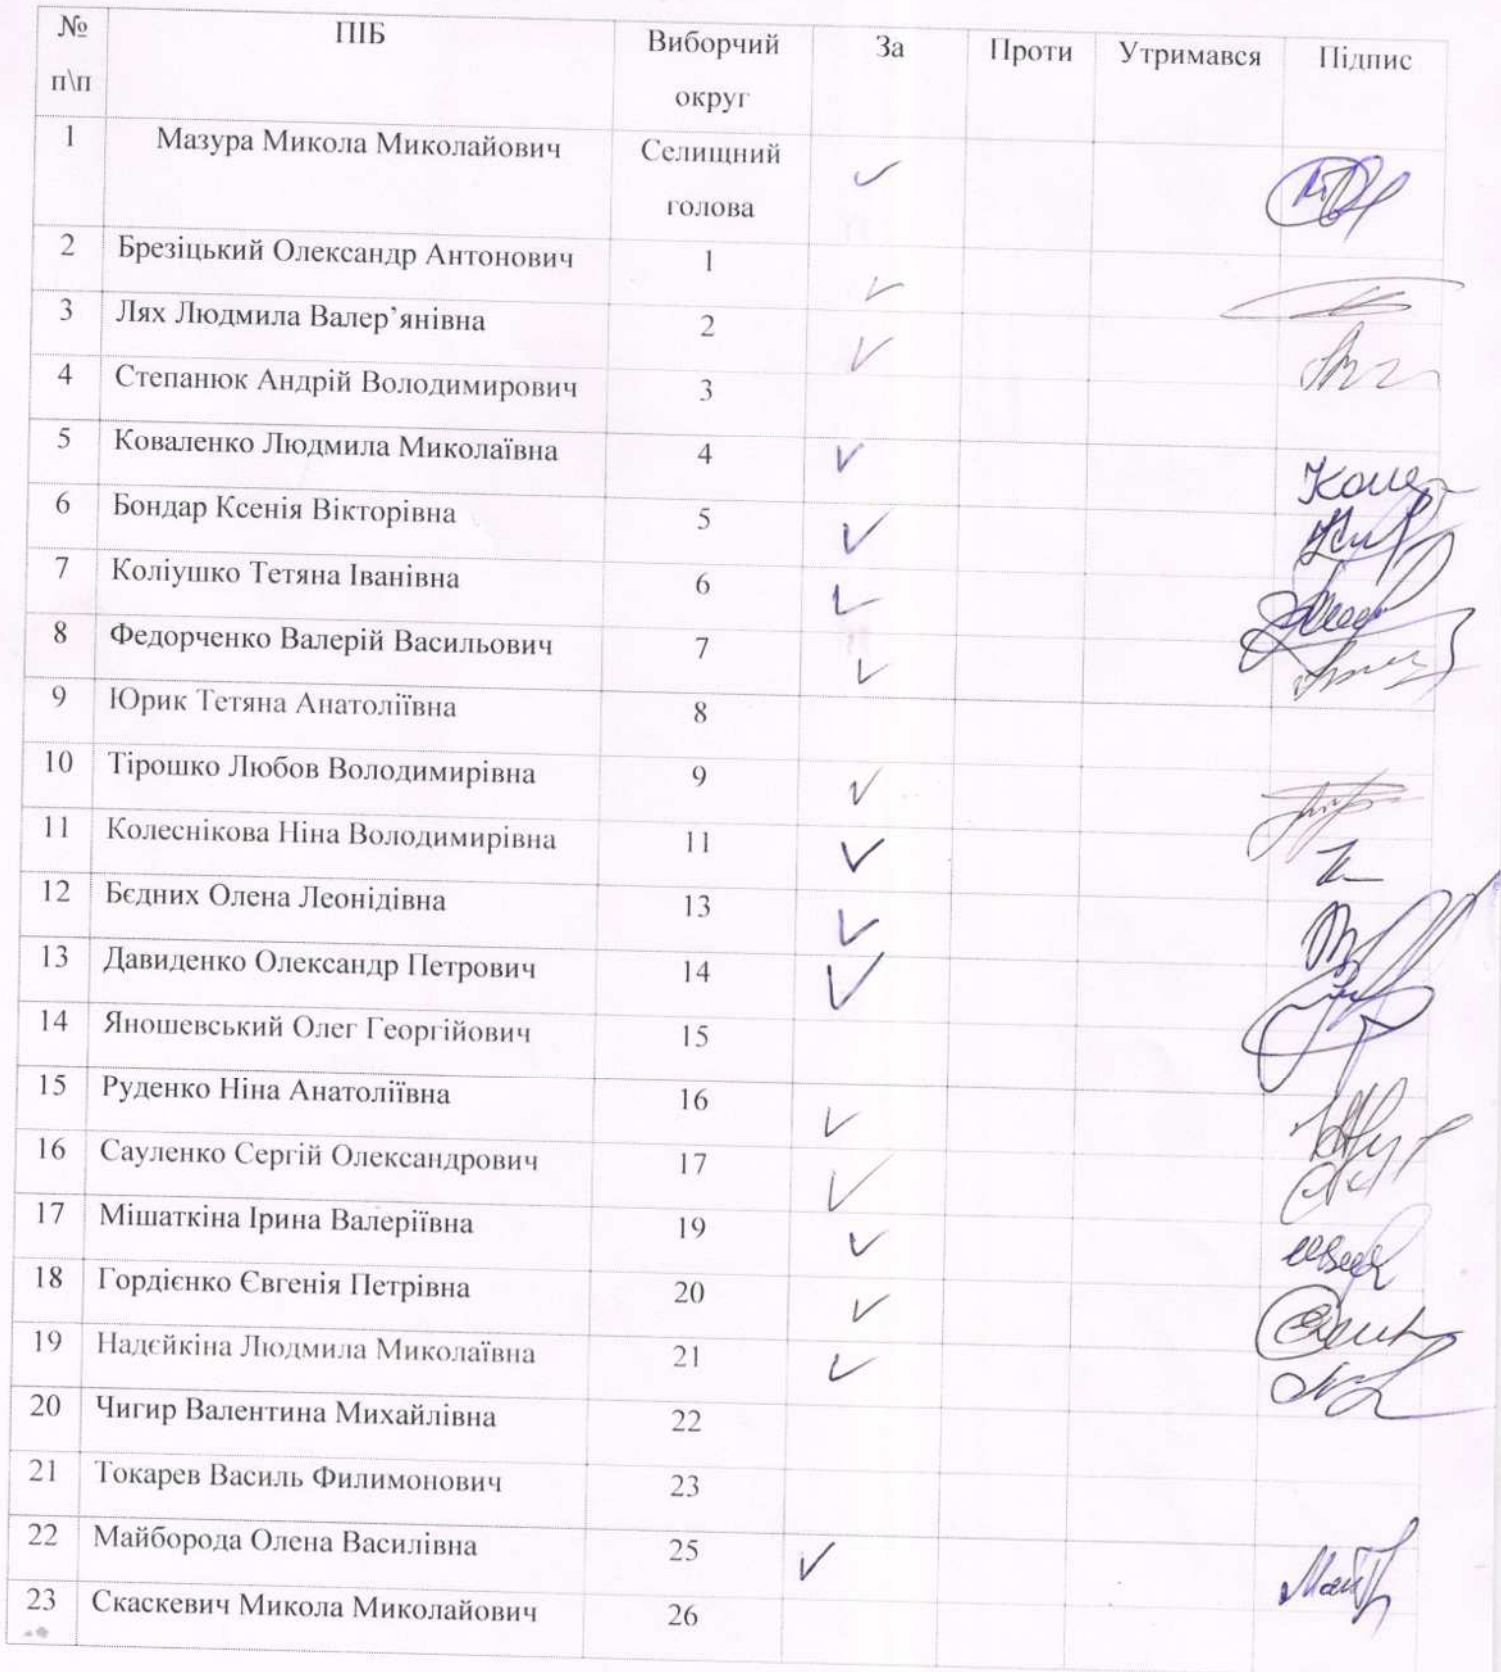 № п\п ПІБ Виборчий округ За Проти Утримався Підпис
1 Мазура Микола Миколайович Селищний голова ✓
2 Брезіцький Олександр Антонович 1 ✓
3 Лях Людмила Валер’янівна 2 ✓
4 Степанюк Андрій Володимирович 3
5 Коваленко Людмила Миколаївна 4 ✓
6 Бондар Ксенія Вікторівна 5 ✓
7 Коліушко Тетяна Іванівна 6 ✓
8 Федорченко Валерій Васильович 7 ✓
9 Юрик Тетяна Анатоліївна 8
10 Тірошко Любов Володимирівна 9 ✓
11 Колеснікова Ніна Володимирівна 11 ✓
12 Бєдних Олена Леонідівна 13 ✓
13 Давиденко Олександр Петрович 14 ✓
14 Яношевський Олег Георгійович 15
15 Руденко Ніна Анатоліївна 16 ✓
16 Сауленко Сергій Олександрович 17 ✓
17 Мішаткіна Ірина Валеріївна 19 ✓
18 Гордієнко Євгенія Петрівна 20 ✓
19 Надєйкіна Людмила Миколаївна 21 ✓
20 Чигир Валентина Михайлівна 22
21 Токарев Василь Филимонович 23
22 Майборода Олена Василівна 25 ✓
23 Скаскевич Микола Миколайович 26